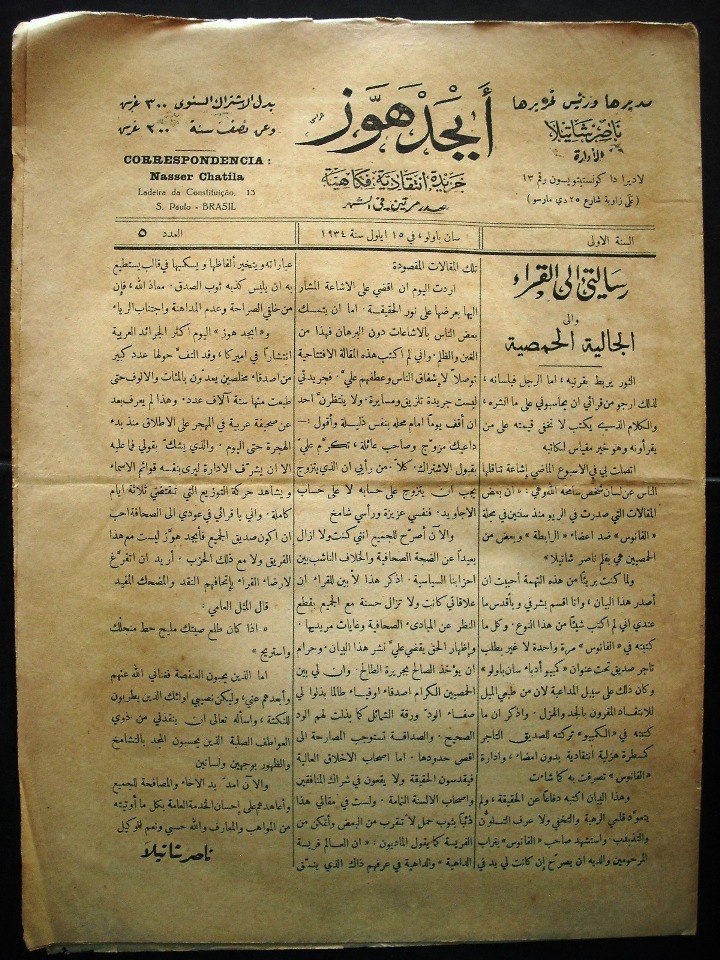 مديرها ورئيس تحريرها
ناصر شاتيلا
الادارة
لاديرا دا كونستيتويسون رقم ١٣
(على زاوية شارع ٢٥ دي مارسو)
أبجد هوّز
جريدة انتقادية فكاهية
تصدر مرتين في الشهر
بدل الاشتراك السنوي ٣٠٠ غرش
وعن نصف سنة ٢٠٠ غرش
CORRESPONDENCIA:
Nasser Chatila
Ladeira da Constituição, 13
S. Paulo - BRASIL
السنة الاولى
سان باولو، في ١٥ ايلول سنة ١٩٣٤
العدد ٥
رسالتي الى القراء
والى
الجالية الحمصية
الثور يربط بقرنيه، اما الرجل فبلسانه،
لذلك ارجو من قرائي ان يحاسبوني على ما انشره،
والكلام الذي يكتب لا تخفى قيمته على من
يقرأونه وهو خير مقياس لكاتبه
اتصلت بي في الاسبوع الماضي إشاعة تناقلها
الناس عن لسان شخص سامحه الله وهي: « ان بعض
المقالات التي صدرت في الريو منذ سنتين في مجلة
«القانوس» ضد اعضاء «الرابطة» وبعض من
الحمصيين هي بقلم ناصر شاتيلا»
ولما كنت بريئًا من هذه التهمة أحببت ان
أصدر هذا البيان، وانا اقسم بشرفي وبأقدس ما
عندي اني لم اكتب شيئًا من هذا النوع. وكل ما
كتبته في «القانوس» مرة واحدة لا غير بطلب
تاجر صديق تحت عنوان «كمبيو أدباء سان باولو»
وكان ذلك على سبيل المداعبة لان من طبعي الميل
للانتقاد المقرون بالجد والهزل. واذكر ان ما
كتبته في «الكمبيو» تركته للصديق التاجر
كسطرة هزلية انتقادية بدون امضاء، وادارة
«القانوس» تصرفت به كما شاءت
وهذا البيان اكتبه دفاعًا عن الحقيقة، ولم
يتعوّد قلمي الرهبة والتخفي ولا عرف التلوّن
والتذبذب. واستشهد صاحب «القانوس» بتراب
المرحومين والديه ان يصرّح إن كانت لي يد في
تلك المقالات المقصودة
اردت اليوم ان اقضي على الاشاعة المشار
اليها بعرضها على نور الحقيقة. اما ان يتمسك
بعض الناس بالاشاعات دون البرهان فهذا من
الغبن والظلم. واني لم اكتب هذه المقالة الافتتاحية
توصلًا لاشفاق الناس وعطفهم عليّ. فجريدتي
ليست جريدة تلزيق ومسايرة. ولا ينتظرنّ احد
ان أقف يومًا امام محله بنفس ذليلة وأقول: —
داعيك مزوّج وصاحب عائلة، تكرّم عليّ
بقبول الاشتراك. كلا. من رأيي ان الذي يتزوج
يجب ان يتزوج على حسابه لا على حساب
الاجاويد. فنفسي عزيزة ورأسي شامخ
والآن أصرّح للجميع انني كنت ولا ازال
بعيدًا عن الضجة الصحافية والخلاف الناشب بين
احزابنا السياسية. اذكر هذا لأبين للقراء ان
علاقاتي كانت ولا تزال حسنة مع الجميع بقطع
النظر عن المبادىء الصحافية وغايات مريديها.
وإظهار الحق يقضي عليّ نشر هذا البيان. وحرام
ان يؤخذ الصالح بجريرة الطالح. وان لي بين
الحمصيين الكرام اصدقاء اوفياء طالما بذلوا لي
صفاء الودّ ورقة الشمائل كما بذلت لهم الود
الصحيح. والصداقة تستوجب المصارحة الى
اقصى حدودها. اما اصحاب الاخلاق العالية
فيقدسون الحقيقة ولا يقعون في شراك المنافقين
واصحاب الالسنة النمامة. ولست في مقالي هذا
ذئبًا بثوب حمل لأتقرب من البعض وأتمكن من
الفريسة كما يقول الماديون: « ان العالم فريسة
الداهية » والداهية في عرفهم ذاك الذي ينمّق
عباراته ويتخير ألفاظها ويسكبها في قالب يستطيع
به ان يلبس كذبه ثوب الصدق. معاذ الله، فإن
من خلقي الصراحة وعدم المداهنة واجتناب الرياء
و«ابجد هوز» اليوم اكثر الجرائد العربية
انتشارًا في اميركا، وقد التفّ حولها عدد كبير
من اصدقاء مخلصين يعدّون بالمئات والالوف حتى
طبعت منها ستة آلاف عدد. وهذا لم يعرف بعد
عن صحيفة عربية في المهجر على الاطلاق منذ بدء
الهجرة حتى اليوم. والذي يشكّ بقولي فما عليه
الا ان يشرّف الادارة ليرى بنفسه قوائم الاسماء
ويشاهد حركة التوزيع التي تقتضي ثلاثة ايام
كاملة. واني يا قرائي في عودي الى الصحافة احب
ان اكون صديق الجميع فأبجد هوّز ليست مع هذا
الفريق ولا مع ذلك الحزب. أريد ان اتفرّغ
لارضاء القراء بإتحافهم النقد والمضحك المفيد
قال المثل العامي:
« اذا كان طلع صيتك مليح حط منجلك
واستريح »
اما الذين يحبون المنفصة فنفاني الله عنهم
وأبعدهم عني، وليكن نصيبي اولئك الذين يطربون
للنكتة، واسأله تعالى ان ينقذني من ذوي
العواطف الصلبة الذين يحسبون المجد بالتشامخ
والظهور بوجهين ولسانين
والآن امدّ يد الاخاء والمصافحة للجميع
وأعاهدهم على إحسان الخدمة العامة بكل ما أوتيته
من المواهب والمعارف والله حسبي ونعم الوكيل
ناصر شاتيلا